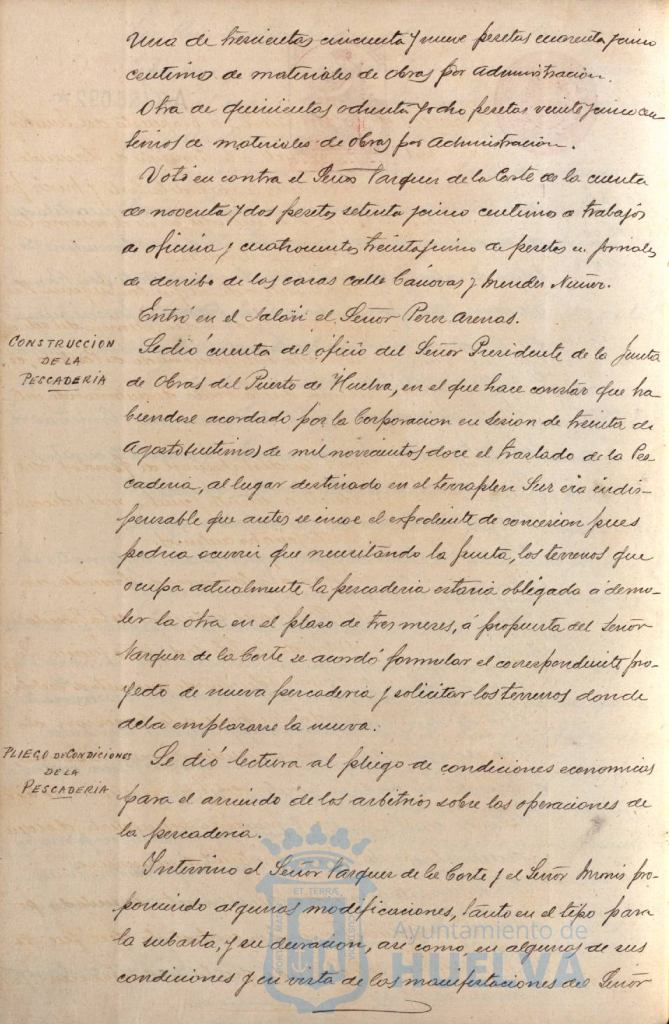 Una de trescientas cincuenta y nueve pesetas cuarenta y cinco
centimos de materiales de obras por administración.
Otra de quinientas ochenta y ocho pesetas veinte y cinco cen
timos de materiales de obras por administracion.
Votó en contra el Señor Vazquez de la Corte de la cuenta
de noventa y dos pesetas setenta y cinco centimos de trabajos
de oficina y cuatrocientas treinta y cinco de pesetas en jornales
de derribo de las casas calle Cánovas y Mendez Nuñez.
Entró en el Salón el Señor Perez Arenas.
CONSTRUCCION
DE LA
PESCADERIA
Se dió cuenta del oficio del Señor Presidente de la Junta
de Obras del Puerto de Huelva, en el que hace constar que ha
biendose acordado por la Corporacion en Sesion de treinta de
Agosto (ultimo) de mil novecientos doce el traslado de la Pes
caderia, al lugar destinado en el terraplen Sur era indis-
pensable que antes se incoe el expediente de concesion pues
podria ocurrir que necesitando la Junta, los terrenos que
ocupa actualmente la pescaderia estaria obligada á demo-
ler la otra en el plaso de tres meses, á propuesta del Señor
Vazquez de la Corte se acordó formular el correspondiente pro-
yecto de nueva pescaderia y solicitar los terrenos donde
deba emplazarse la nueva.
PLIEGO DE CONDICIONES
DE LA
PESCADERIA
Se dió lectura al pliego de condiciones economicas
para el arriendo de los arbitrios sobre las operaciones de
la pescaderia.
Intervino el Señor Vazquez de la Corte y el Señor pro-
poniendo algunas modificaciones, tanto en el tipo para
la subasta, y su duracion, asi como en algunas de sus
condiciones y en vista de las manifestaciones del Señor
Ayuntamiento de
HUELVA